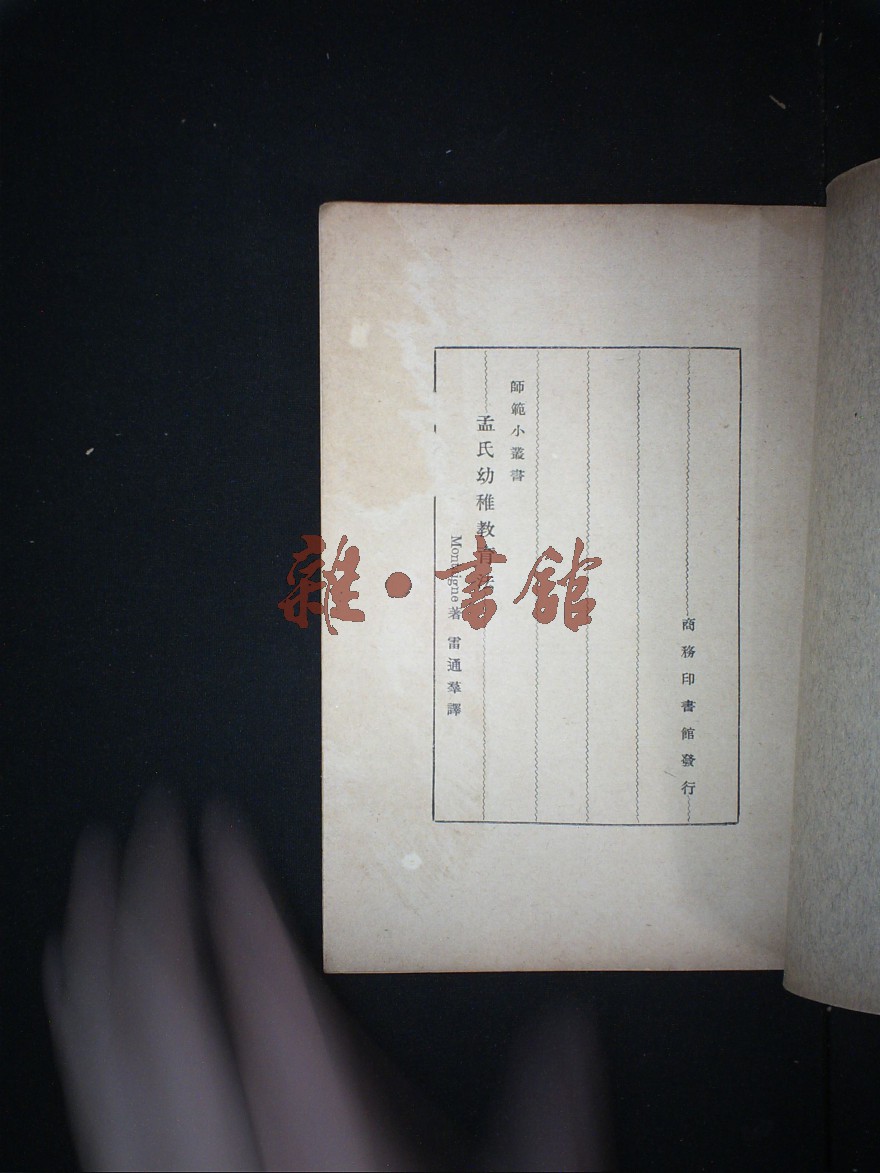 師範小叢書
孟氏幼稚教育法
Montaigne著 雷通羣譯
商務印書館發行
雜·書館